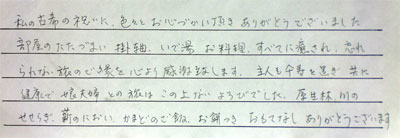 私の古希の祝いに、色々とお心づかい頂きありがとうございました
部屋のたたづまい 掛軸、いで湯 お料理、すべてに癒され、忘れ
られない旅のご縁を心より感謝致します。主人も傘寿を過ぎ 共に
健康で 娘夫婦との旅はこの上ないよろびでした。原生林、川の
せせらぎ、薪のにおい、かまどのご飯、お餅つき おもてなしありがとうございます